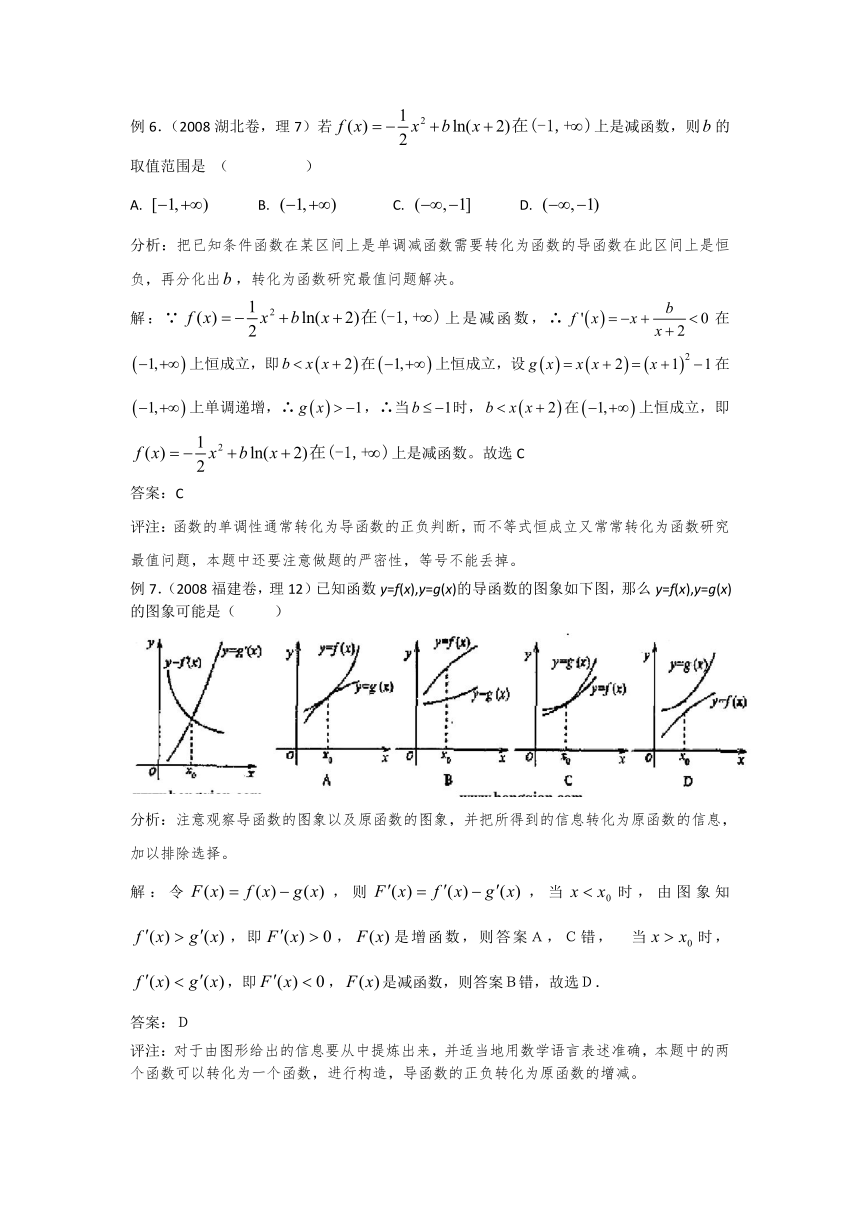 例6.(2008 湖北卷，理 7）若 f(x) = −1/2 x² + b ln(x + 2)在(-1,+∞)上是减函数，则 b 的
取值范围是 （　　　）
A. [−1,+∞)　B. (−1,+∞)　C. (−∞,−1]　D. (−∞,−1)
分析：把已知条件函数在某区间上是单调减函数需要转化为函数的导函数在此区间上是恒
负，再分化出 b ，转化为函数研究最值问题解决。
解：∵ f(x) = −1/2 x² + b ln(x + 2)在(-1,+∞)上是减函数，∴ f '(x) = −x + b/(x+2) < 0 在
(−1,+∞)上恒成立，即 b < x(x+2)在(−1,+∞)上恒成立，设 g(x) = x(x+2) = (x+1)² −1在
(−1,+∞)上单调递增，∴ g(x) > −1，∴当 b ≤ −1时，b < x(x+2)在(−1,+∞)上恒成立，即
f(x) = −1/2 x² + b ln(x + 2)在(-1,+∞)上是减函数。故选 C
答案：C
评注：函数的单调性通常转化为导函数的正负判断，而不等式恒成立又常常转化为函数研究
最值问题，本题中还要注意做题的严密性，等号不能丢掉。
例 7.（2008 福建卷，理 12）已知函数 y=f(x),y=g(x)的导函数的图象如下图，那么 y=f(x),y=g(x)
的图象可能是（　　）
y y=f′(x) y=g′(x) O x₀ x
y y=f(x) y=g(x) O x₀ x A
y y=f(x) y=g(x) O x₀ x B
y y=g(x) y=f(x) O x₀ x C
y y=g(x) y=f(x) O x₀ x D
分析：注意观察导函数的图象以及原函数的图象，并把所得到的信息转化为原函数的信息，
加以排除选择。
解：令 F(x) = f(x) − g(x)，则 F′(x) = f′(x) − g′(x)，当 x < x₀ 时，由图象知
f′(x) > g′(x)，即 F′(x) > 0，F(x)是增函数，则答案Ａ，Ｃ错，　当 x > x₀ 时，
f′(x) < g′(x)，即 F′(x) < 0，F(x)是减函数，则答案Ｂ错，故选Ｄ．
答案：Ｄ
评注：对于由图形给出的信息要从中提炼出来，并适当地用数学语言表述准确，本题中的两
个函数可以转化为一个函数，进行构造，导函数的正负转化为原函数的增减。